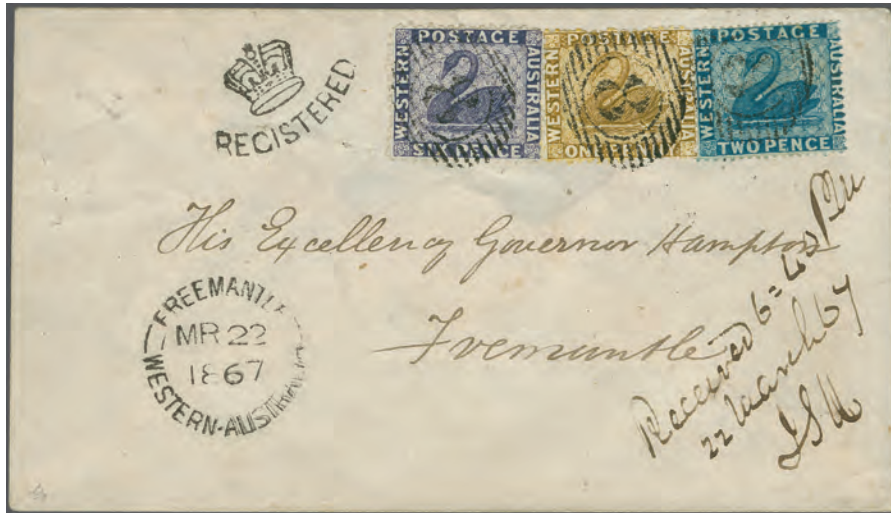 REGISTERED
POSTAGE
WESTERN
AUSTRALIA
SIXPENCE
POSTAGE
WESTERN
AUSTRALIA
ONE PENNY
POSTAGE
WESTERN
AUSTRALIA
TWO PENCE
His Excellency Governor Hampton
Fremantle
FREEMANTLE
MR 22
1867
WESTERN-AUSTRALIA
Received
22 March 67